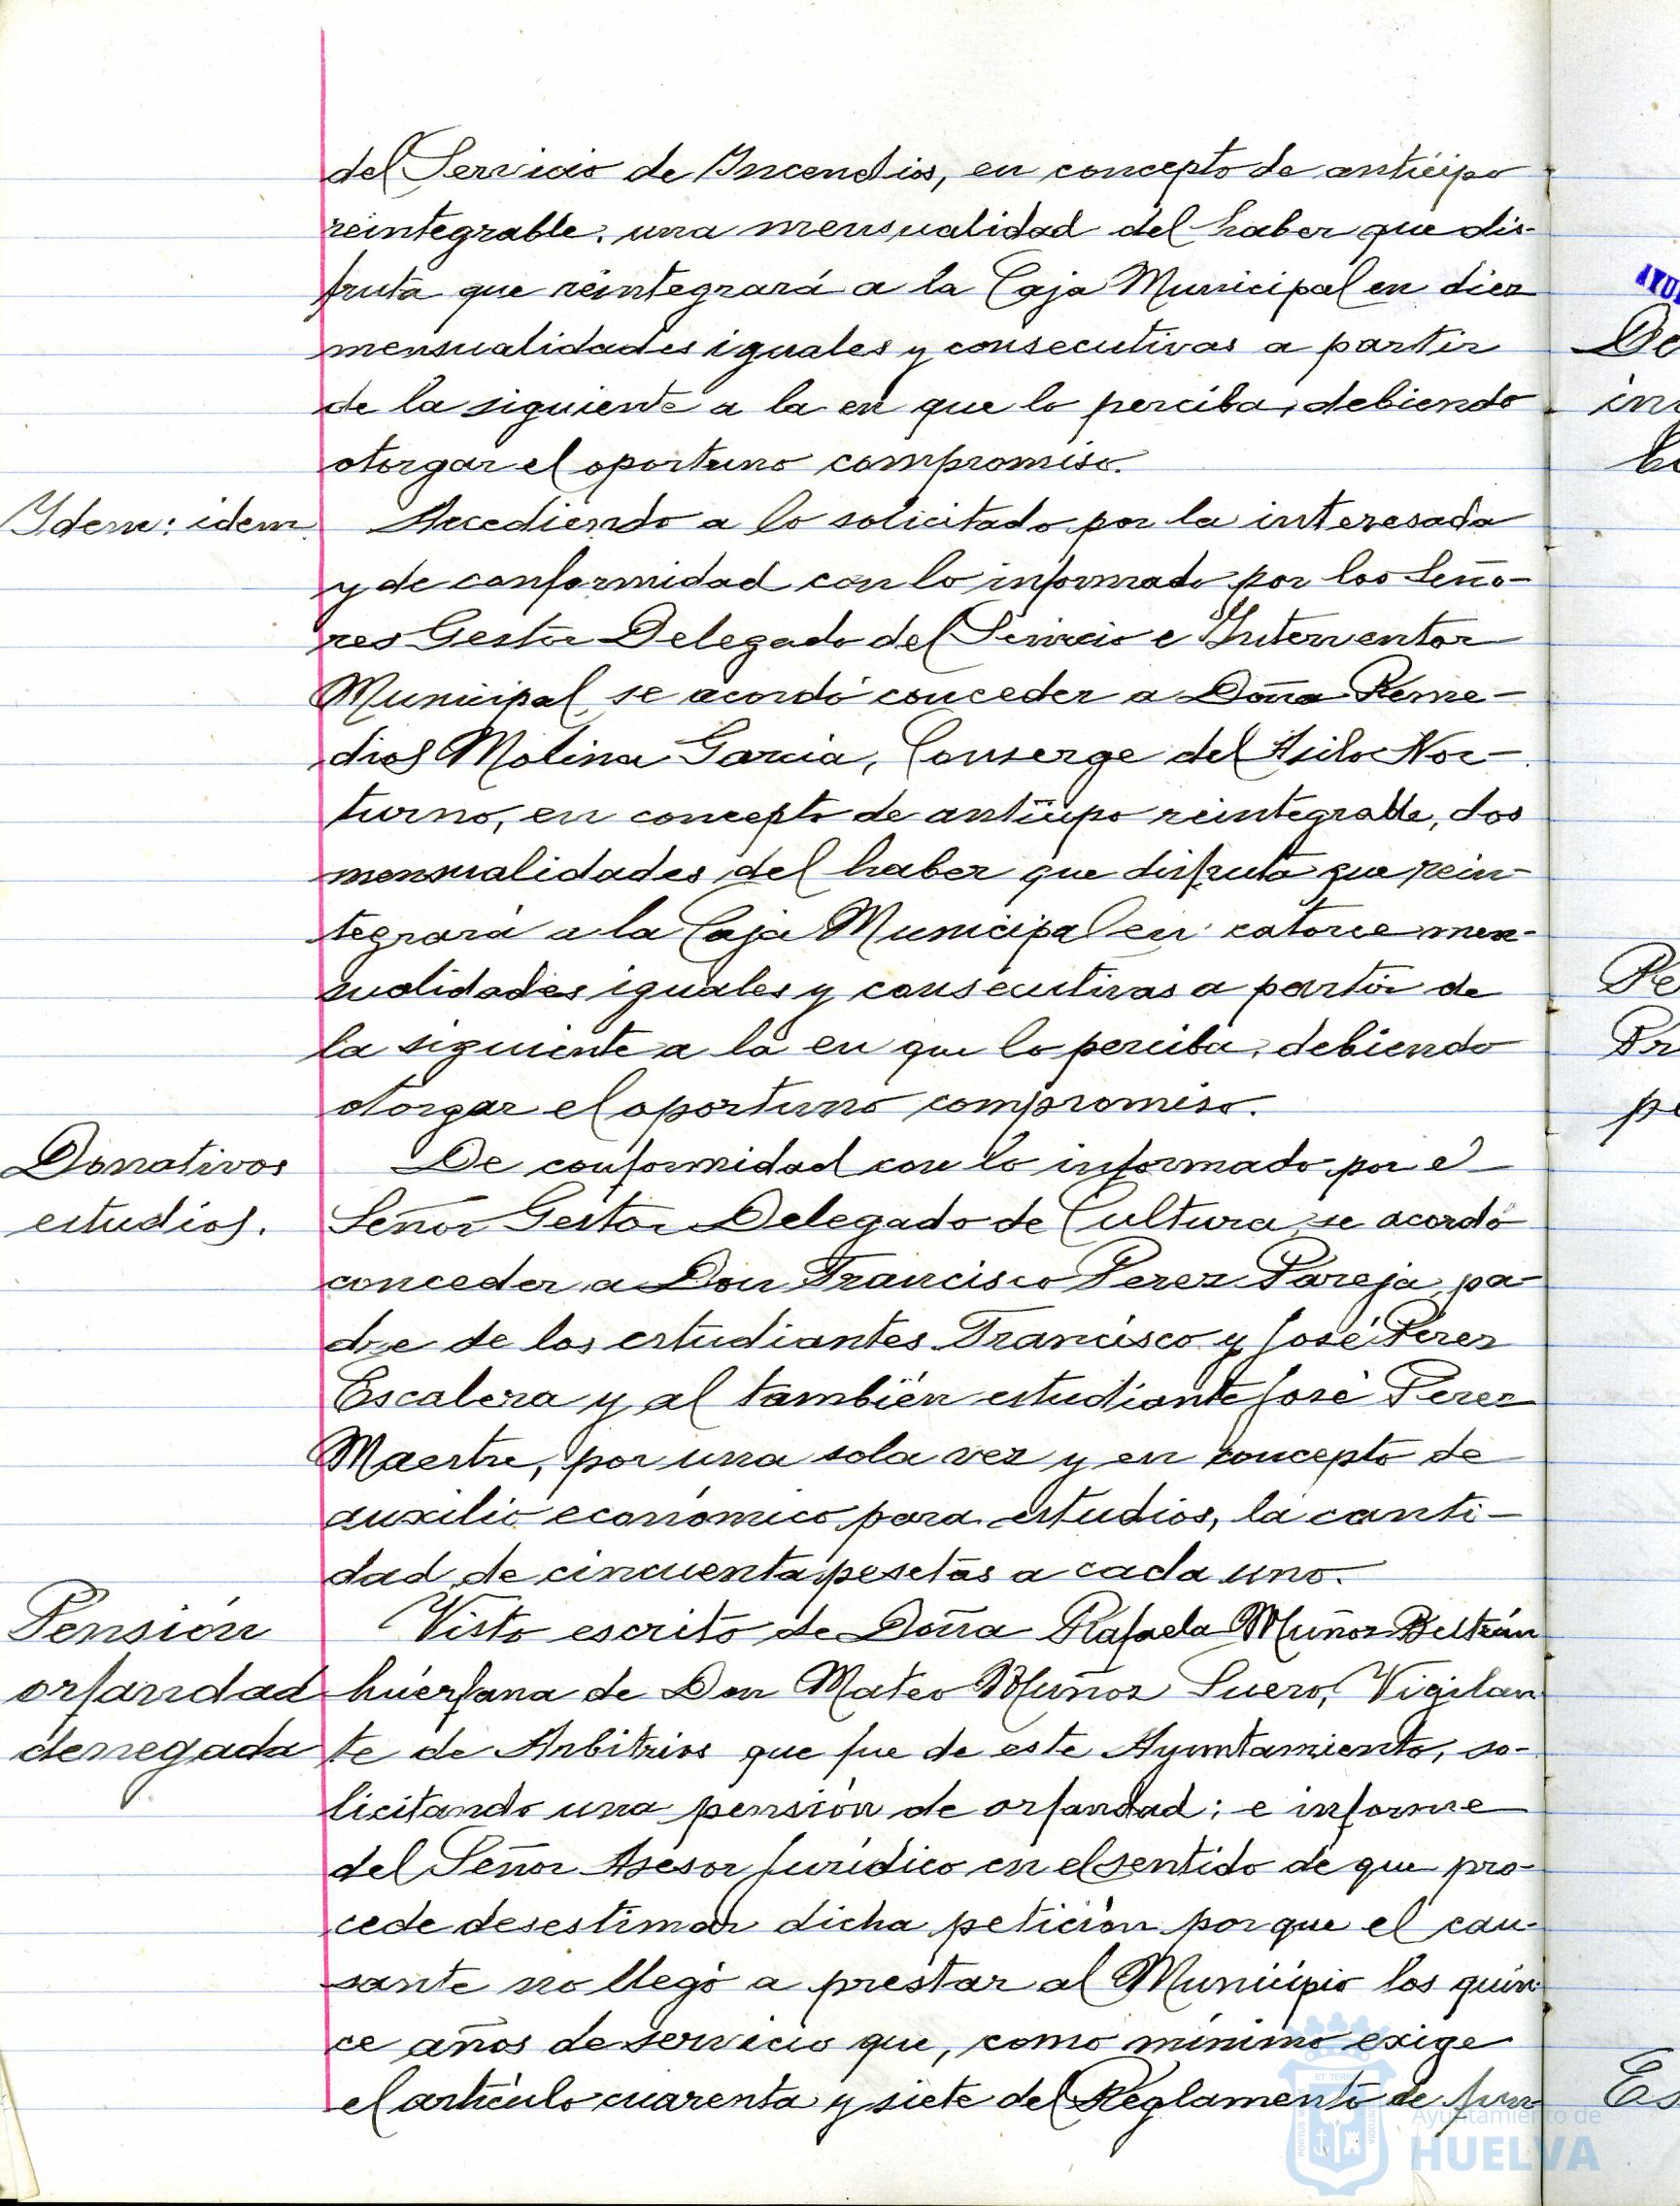 del Servicio de Incendios, en concepto de anticipo
reintegrable, una mensualidad del haber que dis-
fruta que reintegrará a la Caja Municipal en diez
mensualidades iguales y consecutivas a partir
de la siguiente a la en que lo perciba, debiendo
otorgar el oportuno compromiso.
Idem: idem. Accediendo a lo solicitado por la interesada
y de conformidad con lo informado por los Seño-
res Gestor Delegado del Servicio e Interventor
Municipal, se acordó conceder a Doña Reme-
dios Molina Garcia, Conserge del Asilo Noc-
turno, en concepto de anticipo reintegrable, dos
mensualidades del haber que disfruta que rein-
tegrará a la Caja Municipal en catorce men-
sualidades iguales y consecutivas a partir de
la siguiente a la en que lo perciba, debiendo
otorgar el oportuno compromiso.
Donativos De conformidad con lo informado por el
estudios. Señor Gestor Delegado de Cultura, se acordó
conceder a Don Francisco Perez Pareja, pa-
dre de los estudiantes Francisco y José Perez
Escalera y al también estudiante José Perez
Maestre, por una sola vez y en concepto de
auxilio económico para estudios, la canti-
dad de cincuenta pesetas a cada uno.
Pensión Visto escrito de Doña Rafaela Muñoz Beltrán
orfandad huérfana de Don Mateo Muñoz Suero, Vigilan
denegada te de Arbitrios que fue de este Ayuntamiento, so-
licitando una pensión de orfandad; e informe
del Señor Asesor Jurídico en el sentido de que pro-
cede desestimar dicha petición porque el cau-
sante no llegó a prestar al Municipio los quin-
ce años de servicio que, como mínimo exige
el artículo cuarenta y siete del Reglamento de fun
Ayuntamiento de
HUELVA